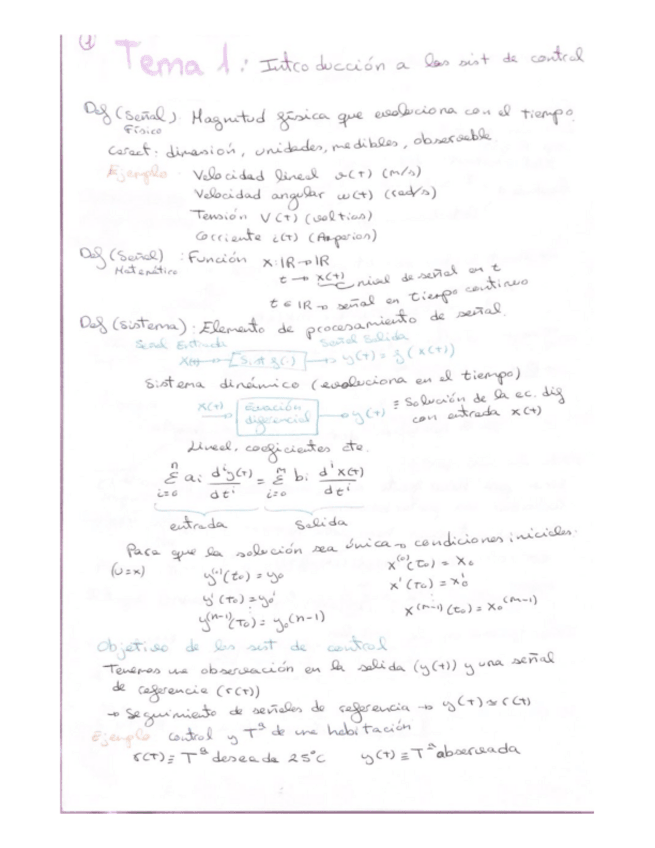 1
Tema 1: Introducción a los sist de control
Def (Señal): Magnitud física que evoluciona con el tiempo.
Físico
Caract: dimesión, unidades, medibles, observable
Ejemplo Velocidad lineal v(t) (m/s)
Velocidad angular w(t) (rad/s)
Tensión V(t) (voltios)
Corriente i(t) (Amperios)
Def (Señal): Función x: IR → IR
Matemático
t → x(t) nivel de señal en t
t ∈ IR → señal en tiempo continuo
Def (Sistema): Elemento de procesamiento de señal.
Señal Entrada Señal Salida
x(t) → Sist f(·) → y(t) = f(x(t))
Sistema dinámico (evoluciona en el tiempo)
x(t) → Ecuación diferencial → y(t) ≡ Solución de la ec. dif
con entrada x(t)
Lineal, coeficientes cte.
n Σ i=0 ai d^i y(t) / dt^i = m Σ i=0 bi d^i x(t) / dt^i
entrada Salida
Para que la solución sea única → condiciones iniciales:
(u=x) y^(0)(t0) = y0 x^(0)(t0) = x0
y'(t0) = y0' x'(t0) = x0'
y^(n-1)(t0) = y0^(n-1) x^(m-1)(t0) = x0^(m-1)
Objetivo de los sist de control
Tenemos una observación en la salida (y(t)) y una señal
de referencia (r(t))
→ Seguimiento de señales de referencia → y(t) ≈ r(t)
Ejemplo control y Tª de una habitación
r(t) ≡ Tª deseada 25°C y(t) ≡ Tª observada